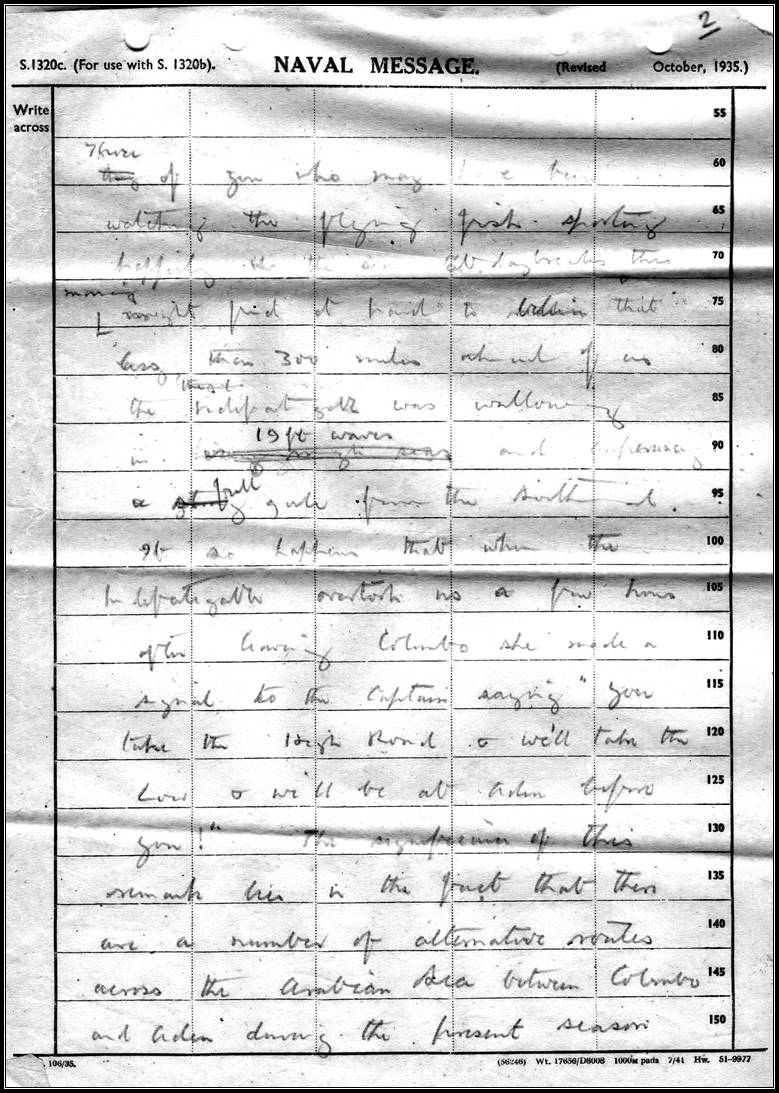 2
S.1320c. (For use with S. 1320b). NAVAL MESSAGE. (Revised October, 1935.)
Write
across
55
Those
they of you who may have been 60
watching the flying fish sporting 65
happily in the sea at daybreak this 70
morning
might find it hard to believe that 75
less than 300 miles ahead of us 80
the Indefatigable was wallowing 85
19 ft waves
in very rough seas and experiencing 90
full
a gale from the South 95
It so happens that when the 100
Indefatigable overtook us a few hours 105
after leaving Colombo she made a 110
signal to the Captain saying "you 115
take the High Road & we'll take the 120
Low & we'll be at Aden before 125
you!" The significance of this 130
remark lies in the fact that there 135
are a number of alternative routes 140
across the Arabian Sea between Colombo 145
and Aden during the present season 150
. 106/35. (56246) Wt. 17656/D8008 1000M pads 7/41 Hw. 51-9977